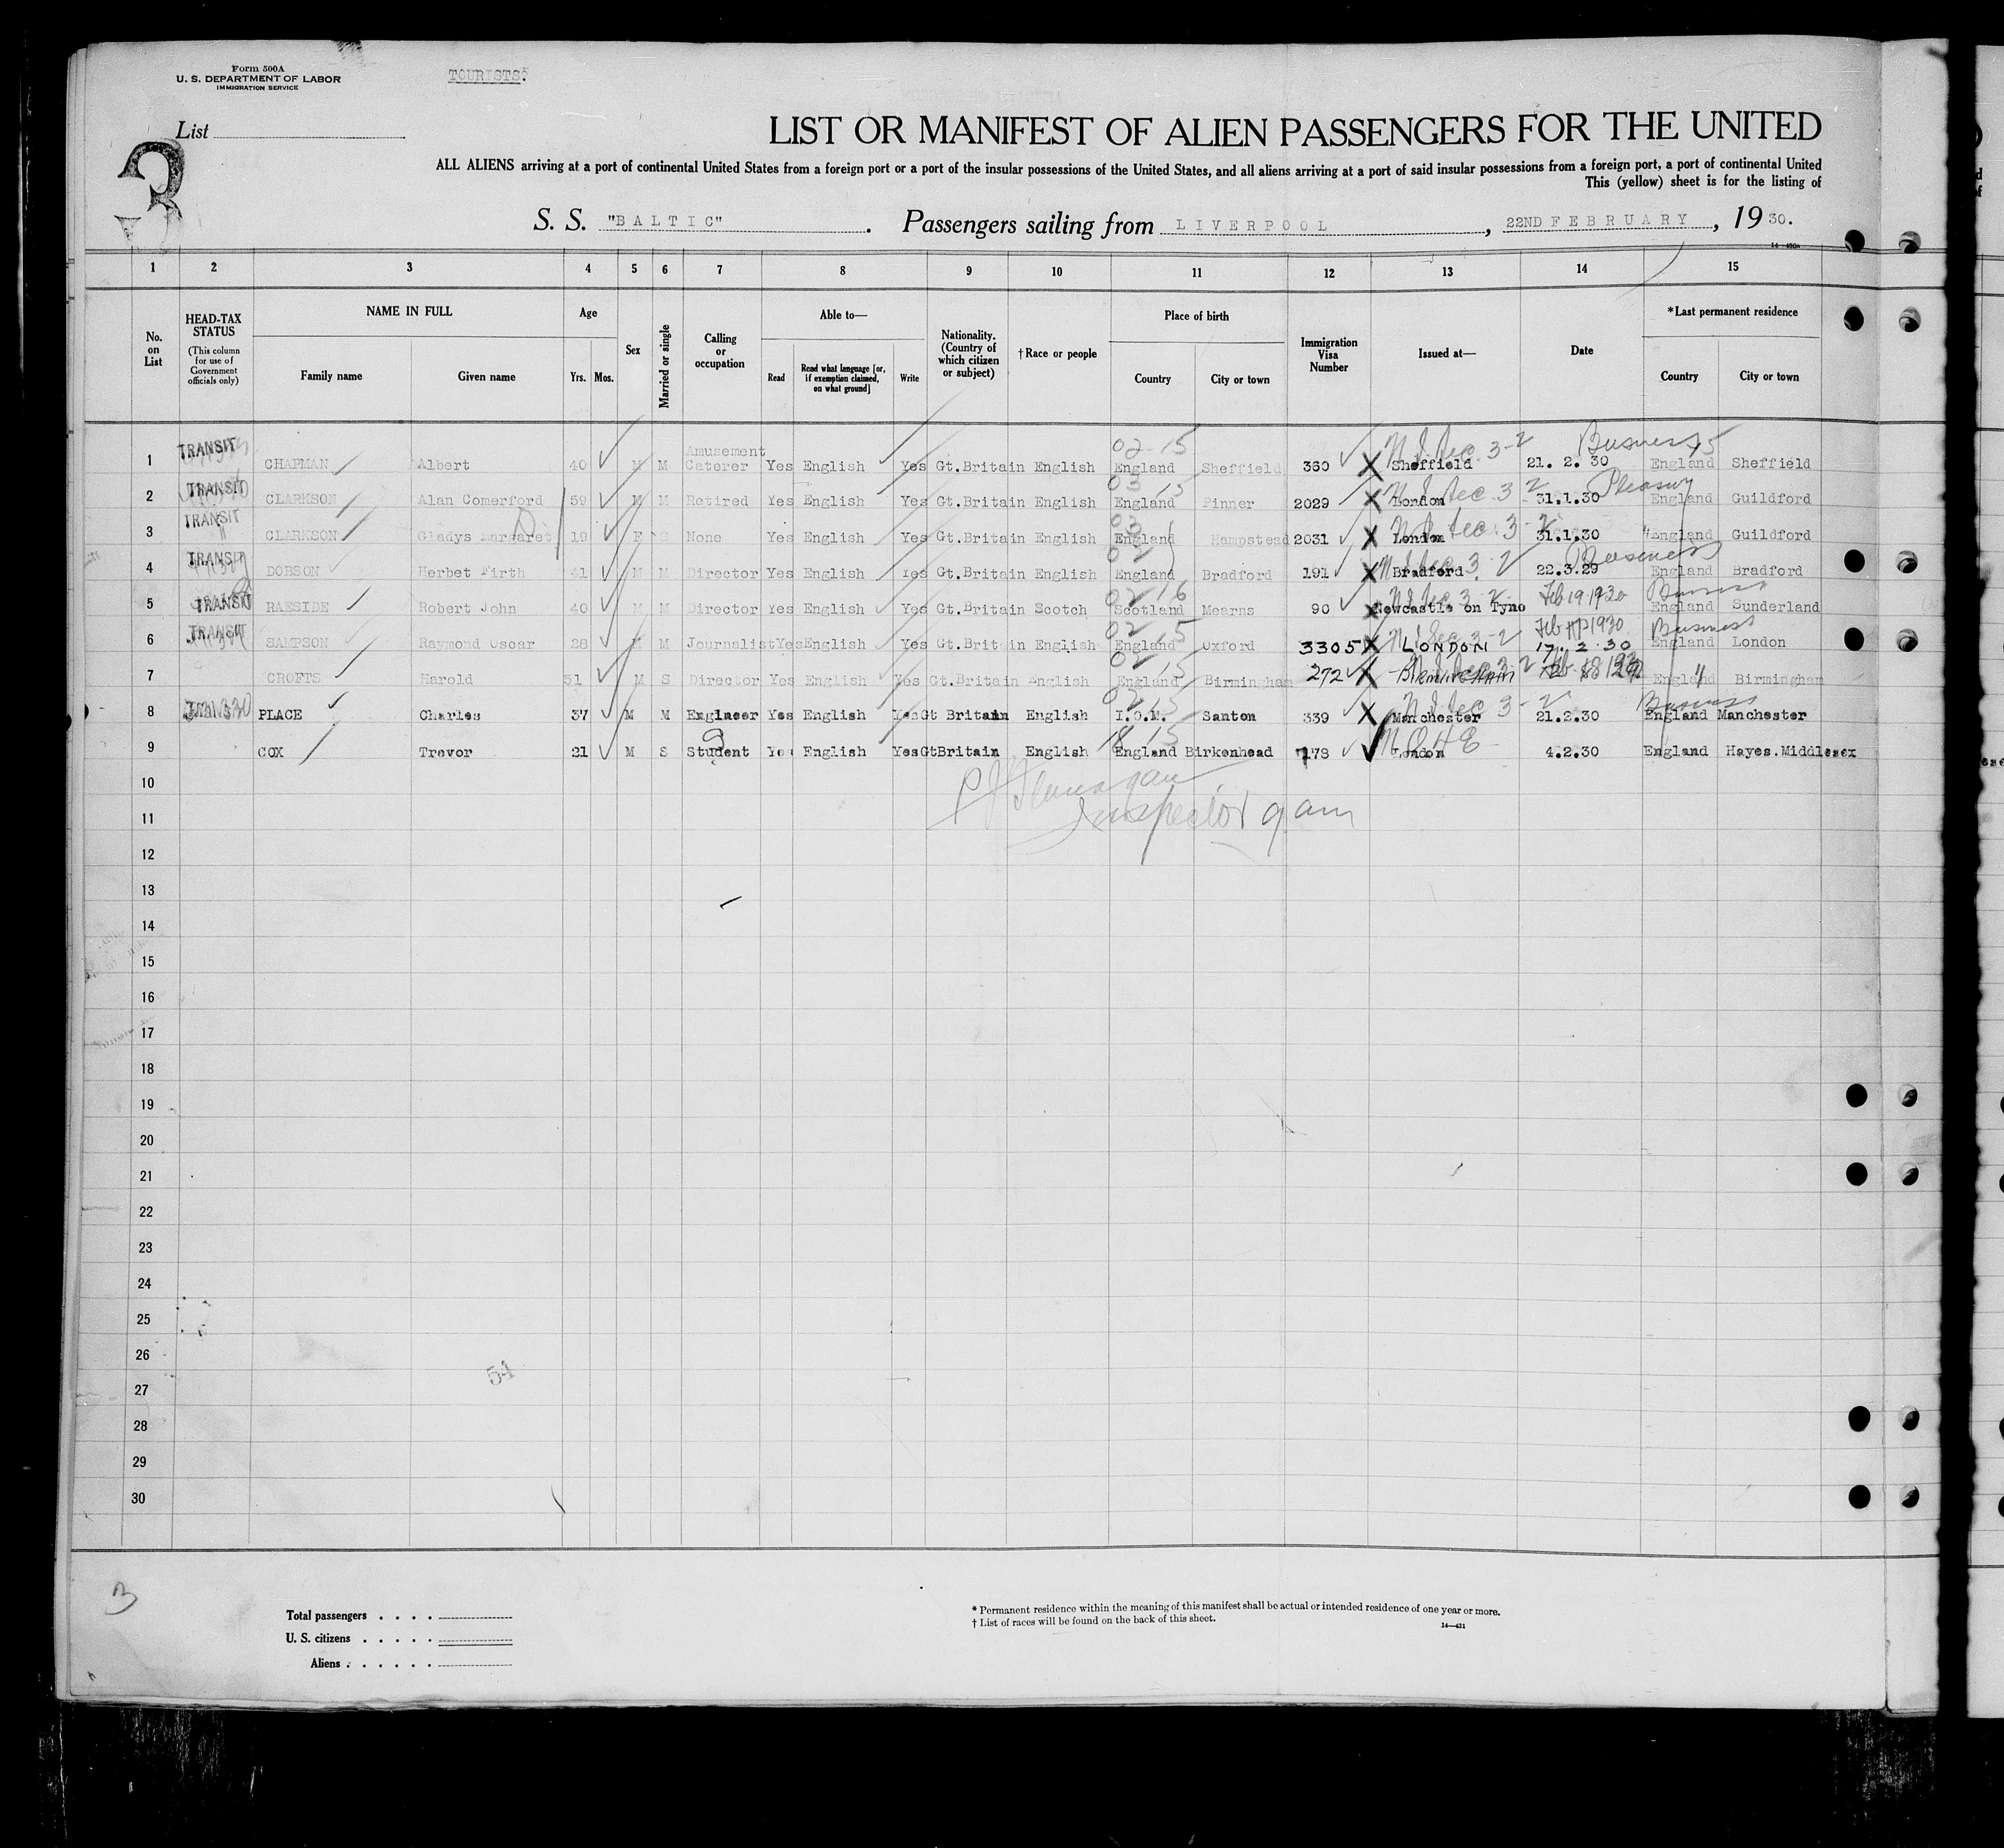 Form 500A
U. S. DEPARTMENT OF LABOR
IMMIGRATION SERVICE
TOURISTS.
List
3
LIST OR MANIFEST OF ALIEN PASSENGERS FOR THE UNITED
ALL ALIENS arriving at a port of continental United States from a foreign port or a port of the insular possessions of the United States, and all aliens arriving at a port of said insular possessions from a foreign port, a port of continental United
This (yellow) sheet is for the listing of
S. S. "BALTIC". Passengers sailing from LIVERPOOL, 22ND FEBRUARY, 19 30.
1 2 3 4 5 6 7 8 9 10 11 12 13 14 15
No. on List
HEAD-TAX STATUS
(This column for use of Government officials only)
NAME IN FULL
Family name Given name
Age
Yrs. Mos.
Sex
Married or single
Calling or occupation
Able to—
Read Read what language [or, if exemption claimed, on what ground] Write
Nationality. (Country of which citizen or subject)
†Race or people
Place of birth
Country City or town
Immigration Visa Number
Issued at—
Date
*Last permanent residence
Country City or town
1 TRANSIT CHAPMAN Albert 40 M M Amusement Caterer Yes English Yes Gt.Britain English 02-15 England Sheffield 360 X Sheffield 3-2 21. 2. 30 Business England Sheffield
2 TRANSIT CLARKSON Alan Comerford 59 M M Retired Yes English Yes Gt.Britain English England Pinner 2029 X London 31.1.30 Pleasure England Guildford
3 TRANSIT CLARKSON Gladys Margaret 19 F S None Yes English Yes Gt.Britain English England Hampstead 2031 X London 3-2 31.1.30 England Guildford
4 TRANSIT DOBSON Herbet Firth 41 M M Director Yes English Yes Gt.Britain English England Bradford 191 X Bradford 22.3.29 Business England Bradford
5 TRANSIT RAESIDE Robert John 40 M M Director Yes English Yes Gt.Britain Scotch Scotland Mearns 90 X Newcastle on Tyne Feb 19 1930 Business England Sunderland
6 TRANSIT SAMPSON Raymond Oscar 28 M M Journalist Yes English Yes Gt.Britain English England Oxford 3305 X LONDON 17. 2. 30 Business England London
7 CROFTS Harold 51 M S Director Yes English Yes Gt.Britain English England Birmingham 272 X England Birmingham
8 PLACE Charles 37 M M Engineer Yes English Yes Gt Britain English I.O.M. Santon 339 X Manchester 21.2.30 Business England Manchester
9 COX Trevor 21 M S Student Yes English Yes GtBritain English England Birkenhead 178 London 4.2.30 England Hayes.Middlesex
10
Flanagan
11
Inspector
12
13
14
15
16
17
18
19
20
21
22
23
24
25
26
54
27
28
29
30
3
Total passengers . . . .
U. S. citizens . . . . .
Aliens . . . . . .
* Permanent residence within the meaning of this manifest shall be actual or intended residence of one year or more.
† List of races will be found on the back of this sheet.
14—431